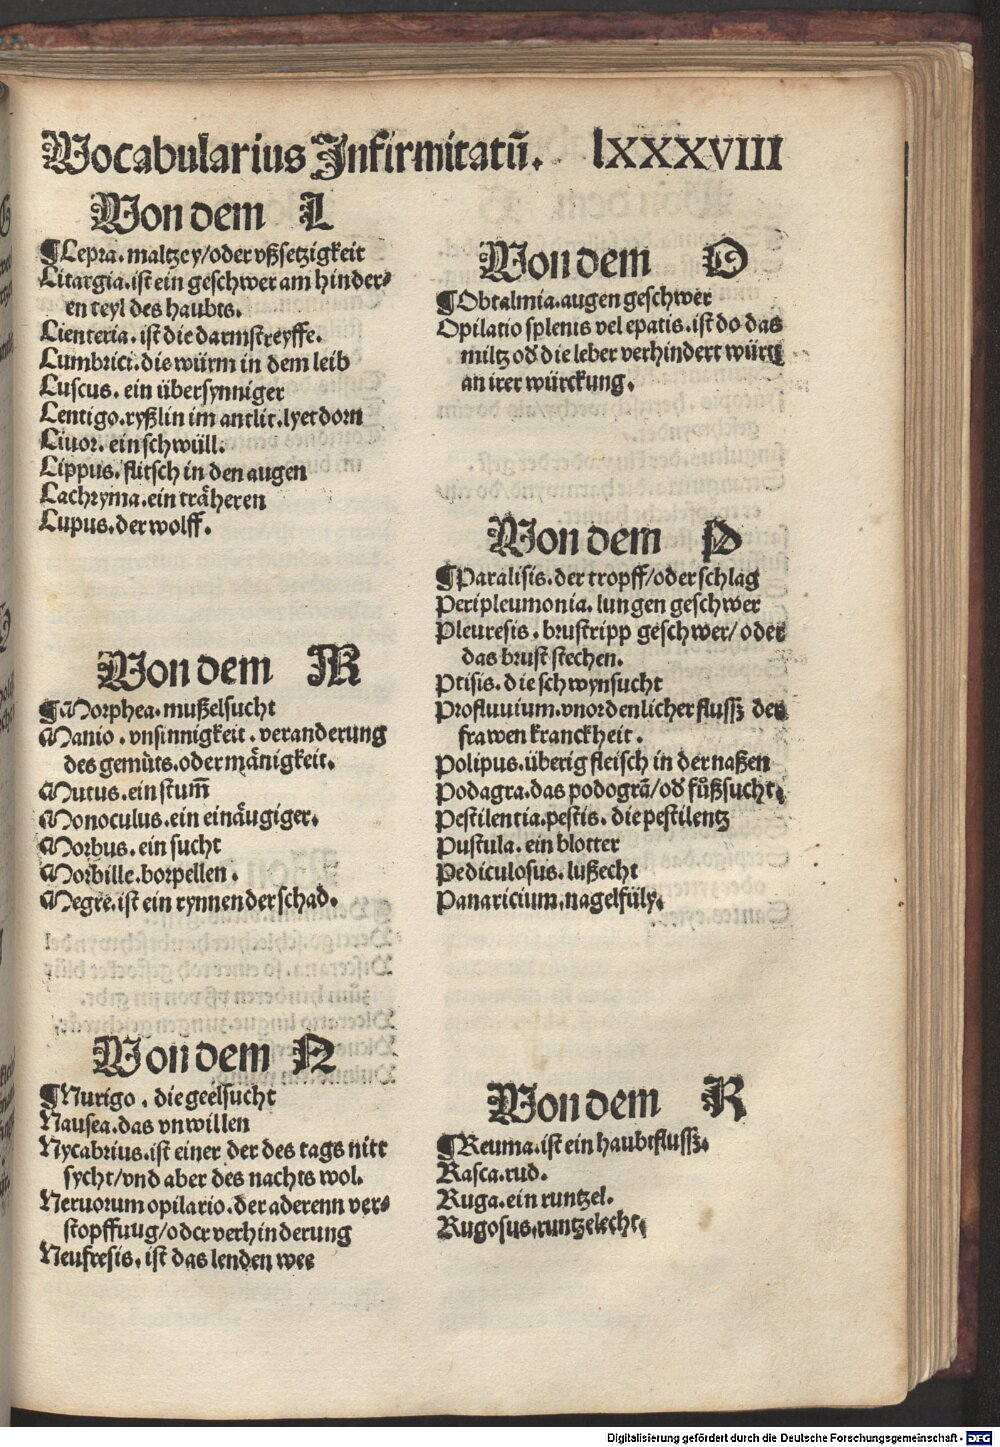 Vocabularius Infirmitatū. lXXXVIII
Von dem L
¶Lepra. maltzey/oder vßsetzigkeit
Litargia. ist ein geschwer am hinder⸗
en teyl des haubts.
Lienteria. ist die darmstreyffe.
Lumbrici. die würm in dem leib
Luscus. ein übersynniger
Lentigo. ryßlin im antlit. lyetdorn
Liuor. ein schwüll.
Lippus. flitsch in den augen
Lachryma. ein träheren
Lupus. der wolff.
Von dem M
¶Morphea. mußelsucht
Manio. vnsinnigkeit. veranderung
des gemüts. oder mänigkeit.
Mutus. ein stum̄
Monoculus. ein einäugiger.
Morbus. ein sucht
Morbille. borpellen.
Megre. ist ein rynnender schad.
Von dem N
¶Nurigo. die geelsucht
Nausea. das vnwillen
Nycabrius. ist einer der des tags nitt
sycht/vnd aber des nachts wol.
Neruorum opilario. der aderenn ver⸗
stopffuug/oder verhinderung
Neufresis. ist das lenden wee
Von dem O
¶Obtalmia. augen geschwer
Opilatio splenis vel epatis. ist do das
miltz od̄ die leber verhindert würt
an irer würckung.
Von dem P
¶Paralisis. der tropff/oder schlag
Peripleumonia. lungen geschwer
Pleuresis. brustripp geschwer/oder
das brust stechen.
Ptisis. die schwynsucht
Profluuium. vnordenlicher flussz der
frawen kranckheit.
Polipus. überig fleisch in der naßen
Podagra. das podogrā/od̄ fůßsucht.
Pestilentia. pestis. die pestilentz
Pustula. ein blotter
Pediculosus. lußecht
Panaricium. nagelfüly.
Von dem R
¶Reuma. ist ein haubtflussz.
Rasca. rud.
Ruga. ein runtzel.
Rugosus. runtzelecht.
Digitalisierung gefördert durch die Deutsche Forschungsgemeinschaft - DFG